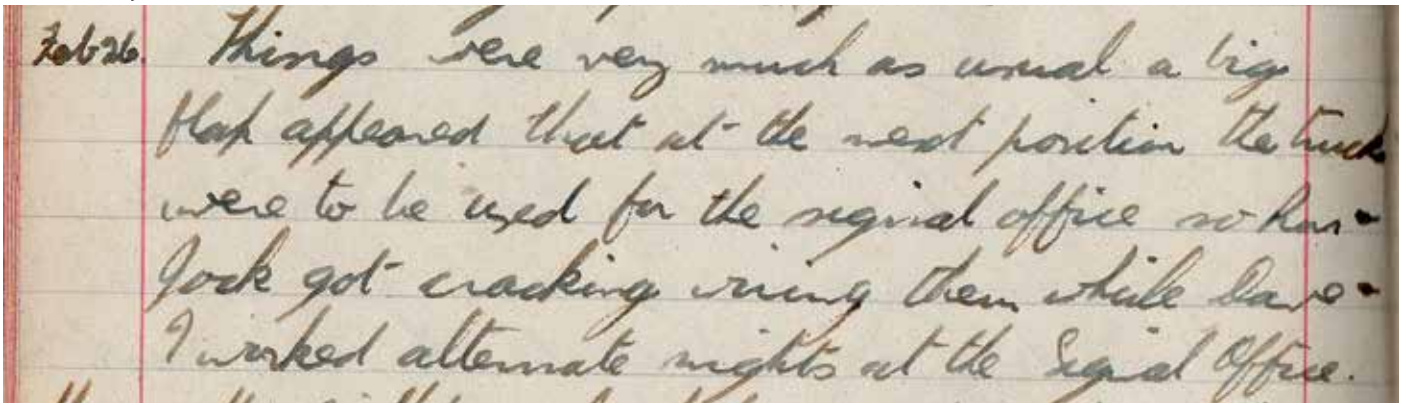 Feb 26. Things were very much as usual a big
flap appeared that at the next position the trucks
were to be used for the signal office so &
Jock got cracking wiring them while Dave &
I worked alternate nights at the Signal Office.